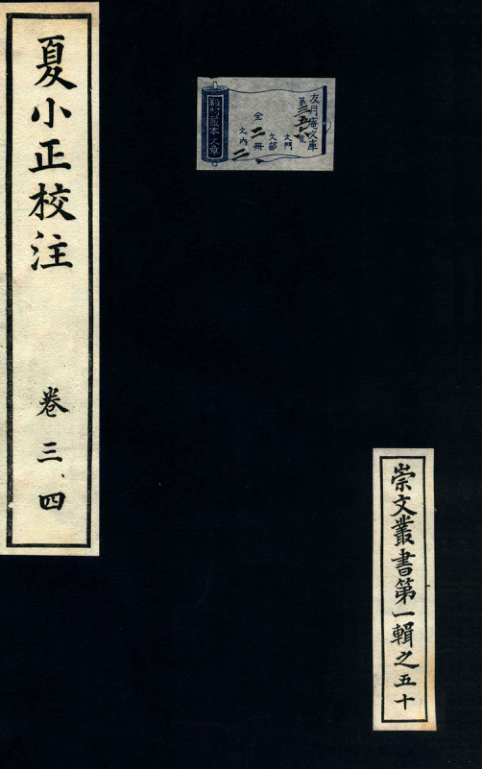 崇文叢書第一輯之五十
友月庵文庫
第三五七號
文門
文部
全二冊
文內二
夏小正校注 卷三、四